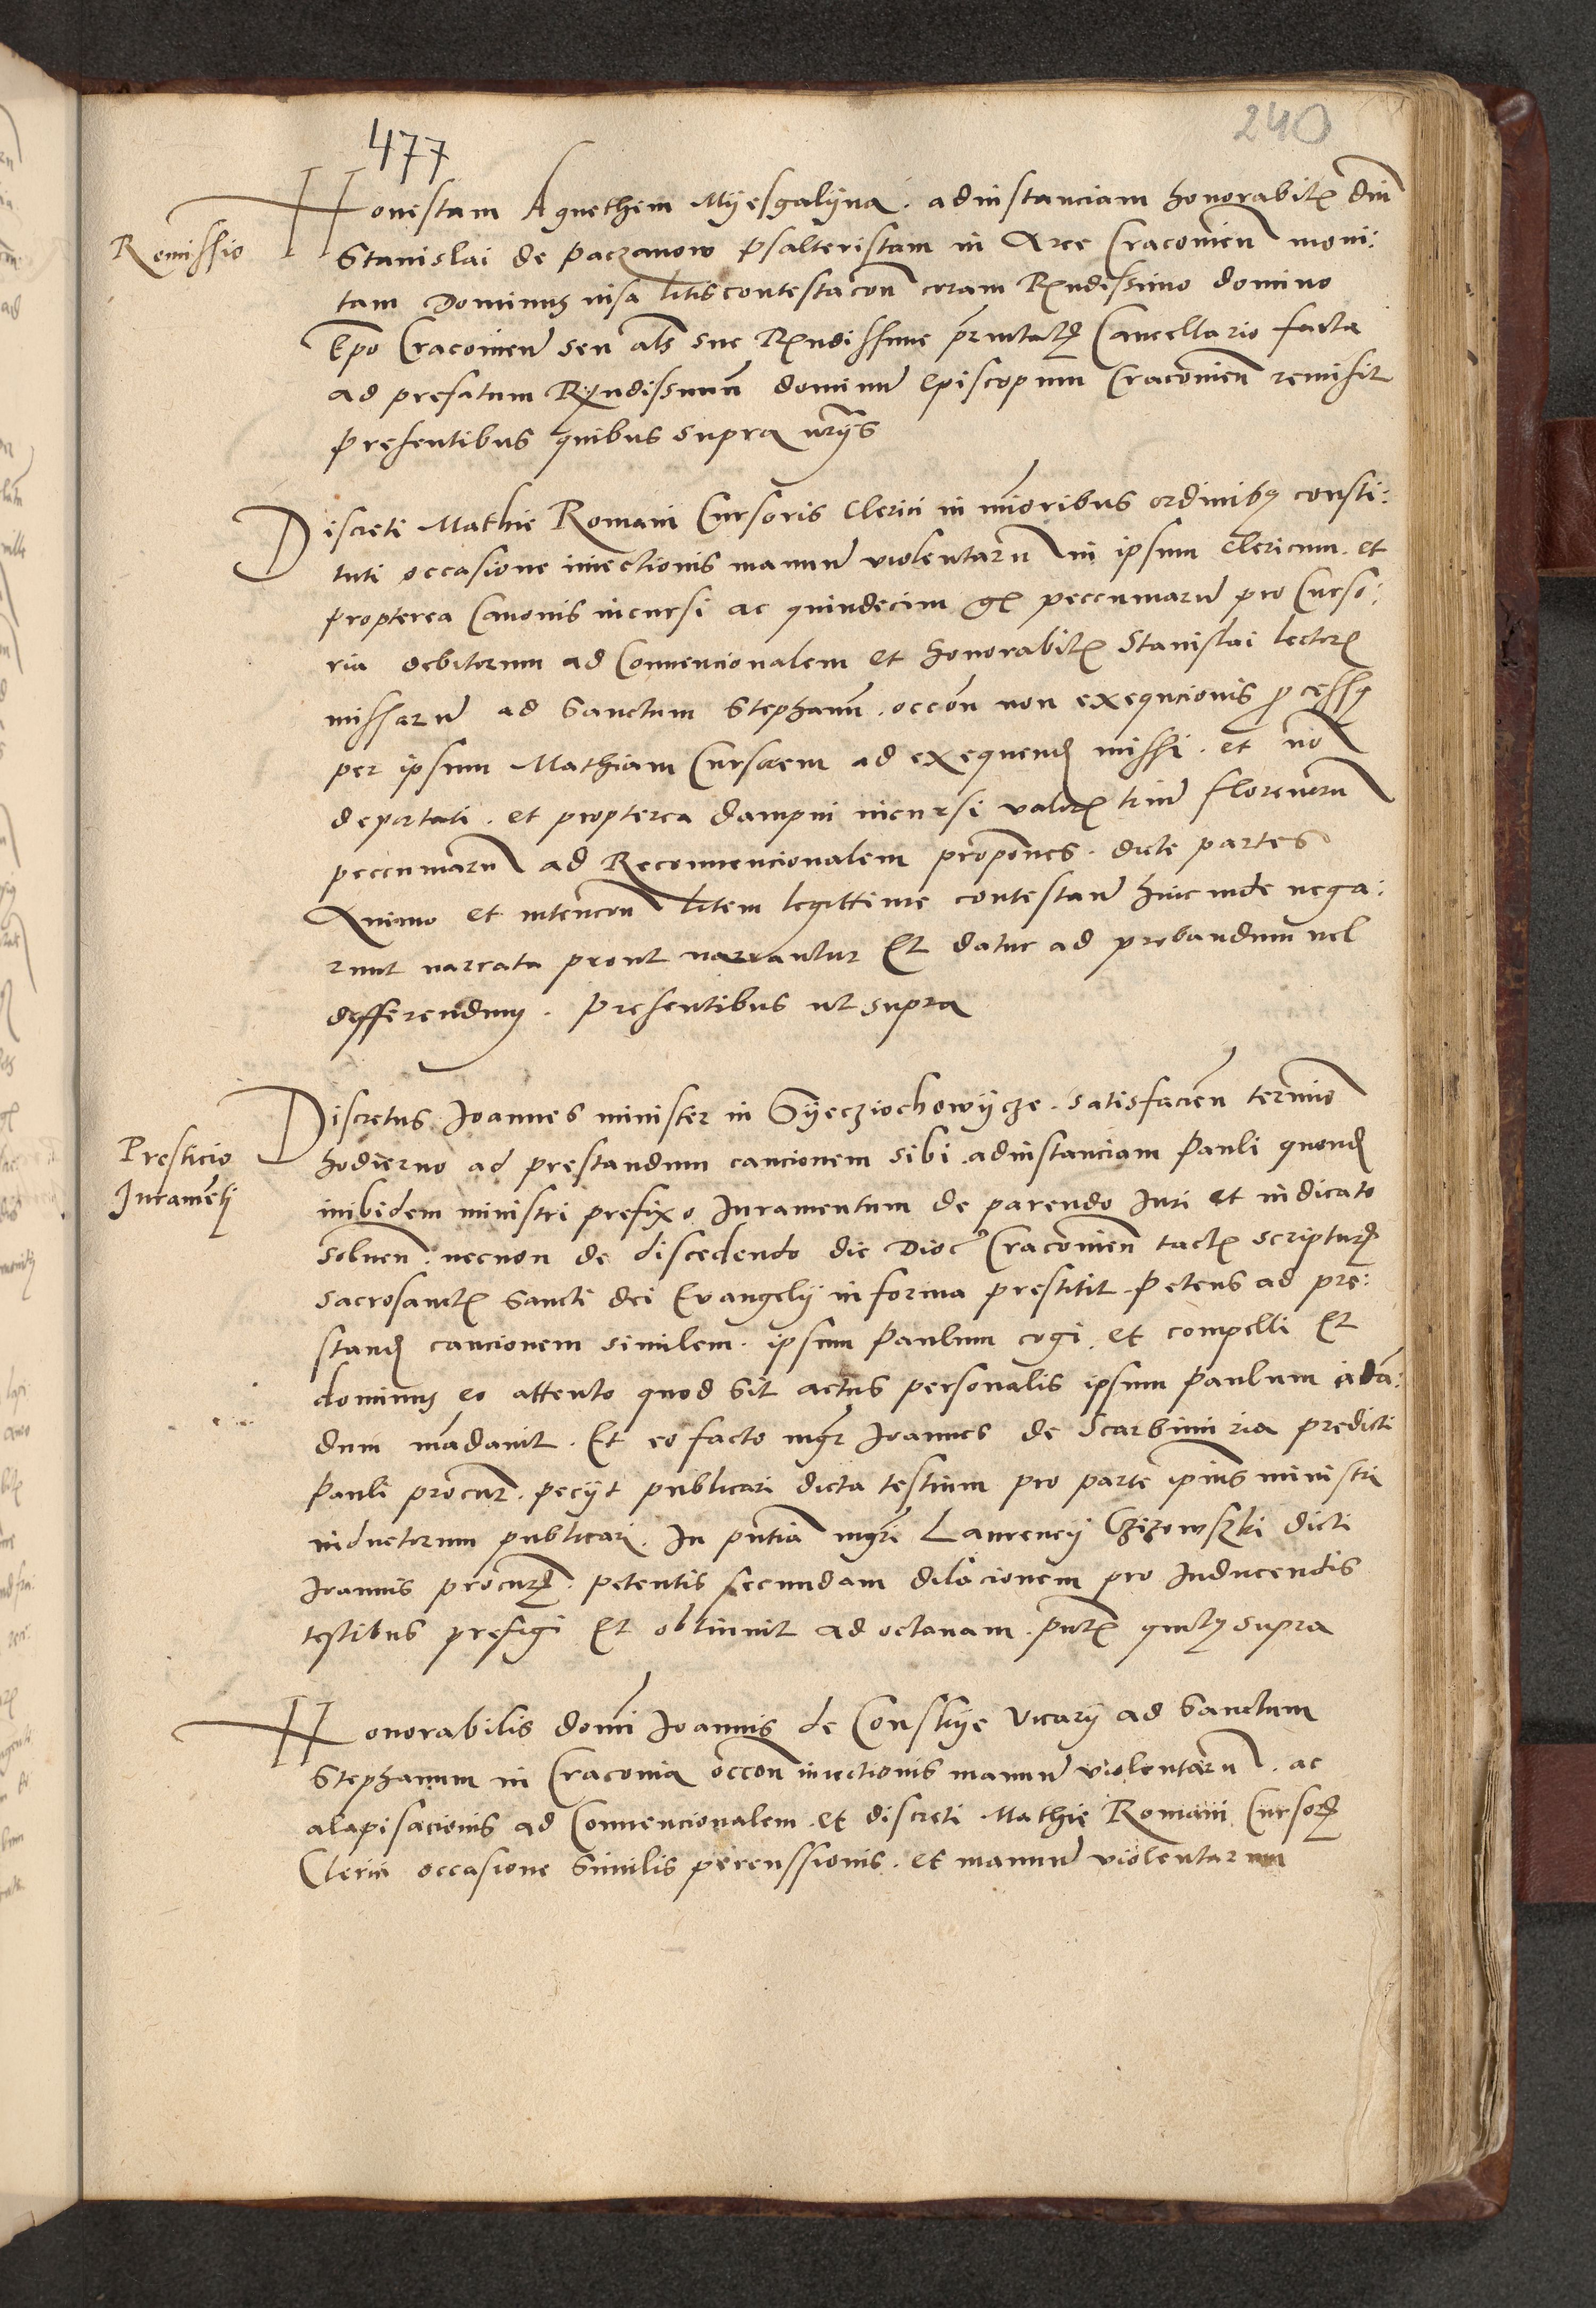 477
240
Remissio
Honestam Agnethem Myesgalyna . ad instanciam honorabil dni
Stanislai de Paczanow psalteristam in Arce Cracovien moni:
tam Dominus visa litiscontestacon coram Rendissimo domino
Epo Cracovien seu als sue Rendissime prnitatis Cancellario facta
ad prefatum Rendissimu dominu episcopum Cracovien remisit
presentibus quibus supra
Discreti Mathie Romani Cursoris Clerici in minoribus ordinibus consti:
tuti occasione iniectionis manuu violentaru in ipsum clericum . et
propterea Canonis incursi ac quindecim gr pecuniaru pro Curso:
ria debitorum ad Convencionalem et honorabil Stanislai lector
missaru ad Sanctum Stephanu . occon non exequcionis processus
per ipsum Mathiam Cursorem ad exequend missi . et no
deportati . et propterea dampni incursi valor triu florenoru
pecuniaru ad Reconvencionalem propones . dicte partes
Animo et intencon litem legittime contestan hincinde nega:
runt narrata prout narrantur Et datur ad probandum vel
differendum . Presentibus ut supra
Presticio
Iuramenti
Discretus Joannes minister in Syecziechowycze . satisfacien termino
hodierno ad prestandum caucionem sibi ad instanciam Pauli quond
inibidem ministri prefixo Iuramentum de parendo Iuri et iudicato
solven . necnon de discedendo die Dioc Cracovien tact scriptur
sacrosanct sancti dei Evangelij in forma prestitit . Petens ad pre:
stand caucionem similem . ipsum Paulum cogi . et compelli Et
dominus eo attento quod sit actus personalis ipsum Paulum
dum mandavit . Et eo facto mgr Joannes de Scarbimiria predicti
Pauli procur . pecijt publicari dicta testium pro parte ipius ministri
inductorum publicari . In pntia mgri Laurencij Czizowszki dicti
Joannis procur . petentis secundam dilacionem pro inducendis
testibus prefigi Et obtinuit ad octavam . pntib quibus supra
Honorabilis domi Joannis de Conskye Vicarij ad Sanctum
Stephanum in Cracovia occon iniectionis manuu violentaru . ac
alapisacionis ad Convencionalem . et discreti Mathie Romani Cursor
Clerici occasione similis percussionis . et manuu violentarum